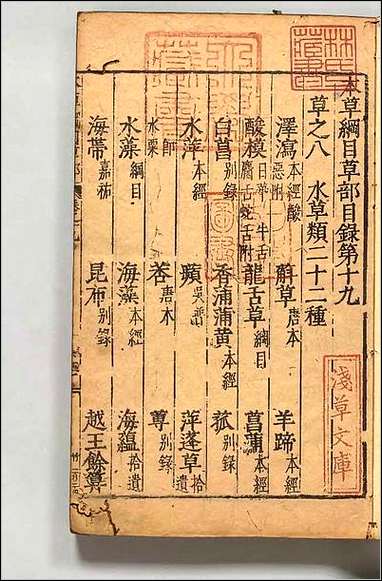 本草綱目草部目錄第十九
草之八　水草類二十二種
澤瀉本經酸惡附　䔖草唐本　羊蹄本經
酸模日華牛舌腐舌蛇舌附　龍舌草綱目　菖蒲本經
白菖別錄　香蒲蒲黃本經　菰別錄
水萍本經　蘋吳普　萍蓬草拾遺
水粟　莕唐本　蓴別錄
水藻綱目　海藻本經　海蘊拾遺
海帶嘉祐　昆布別錄　越王餘筭
林氏藏書
淺草文庫